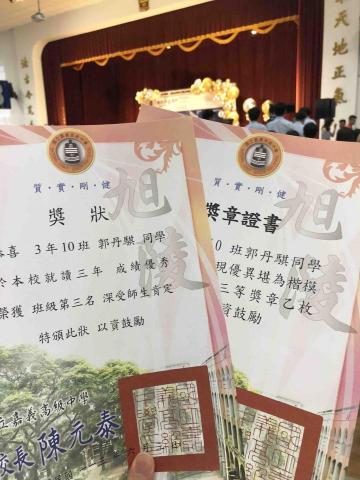 天地正氣
質·實·剛·健
旭陵
獎狀
喜 3年10班 郭丹騏 同學
於本校就讀三年 成績優秀
榮獲 班級第三名 深受師生肯定
特頒此狀 以資鼓勵
立嘉義高級中學
校長 陳元泰
質·實·剛·健
旭陵
獎章證書
0 班郭丹騏同學
現優異堪為楷模
三等獎章乙枚
資鼓勵